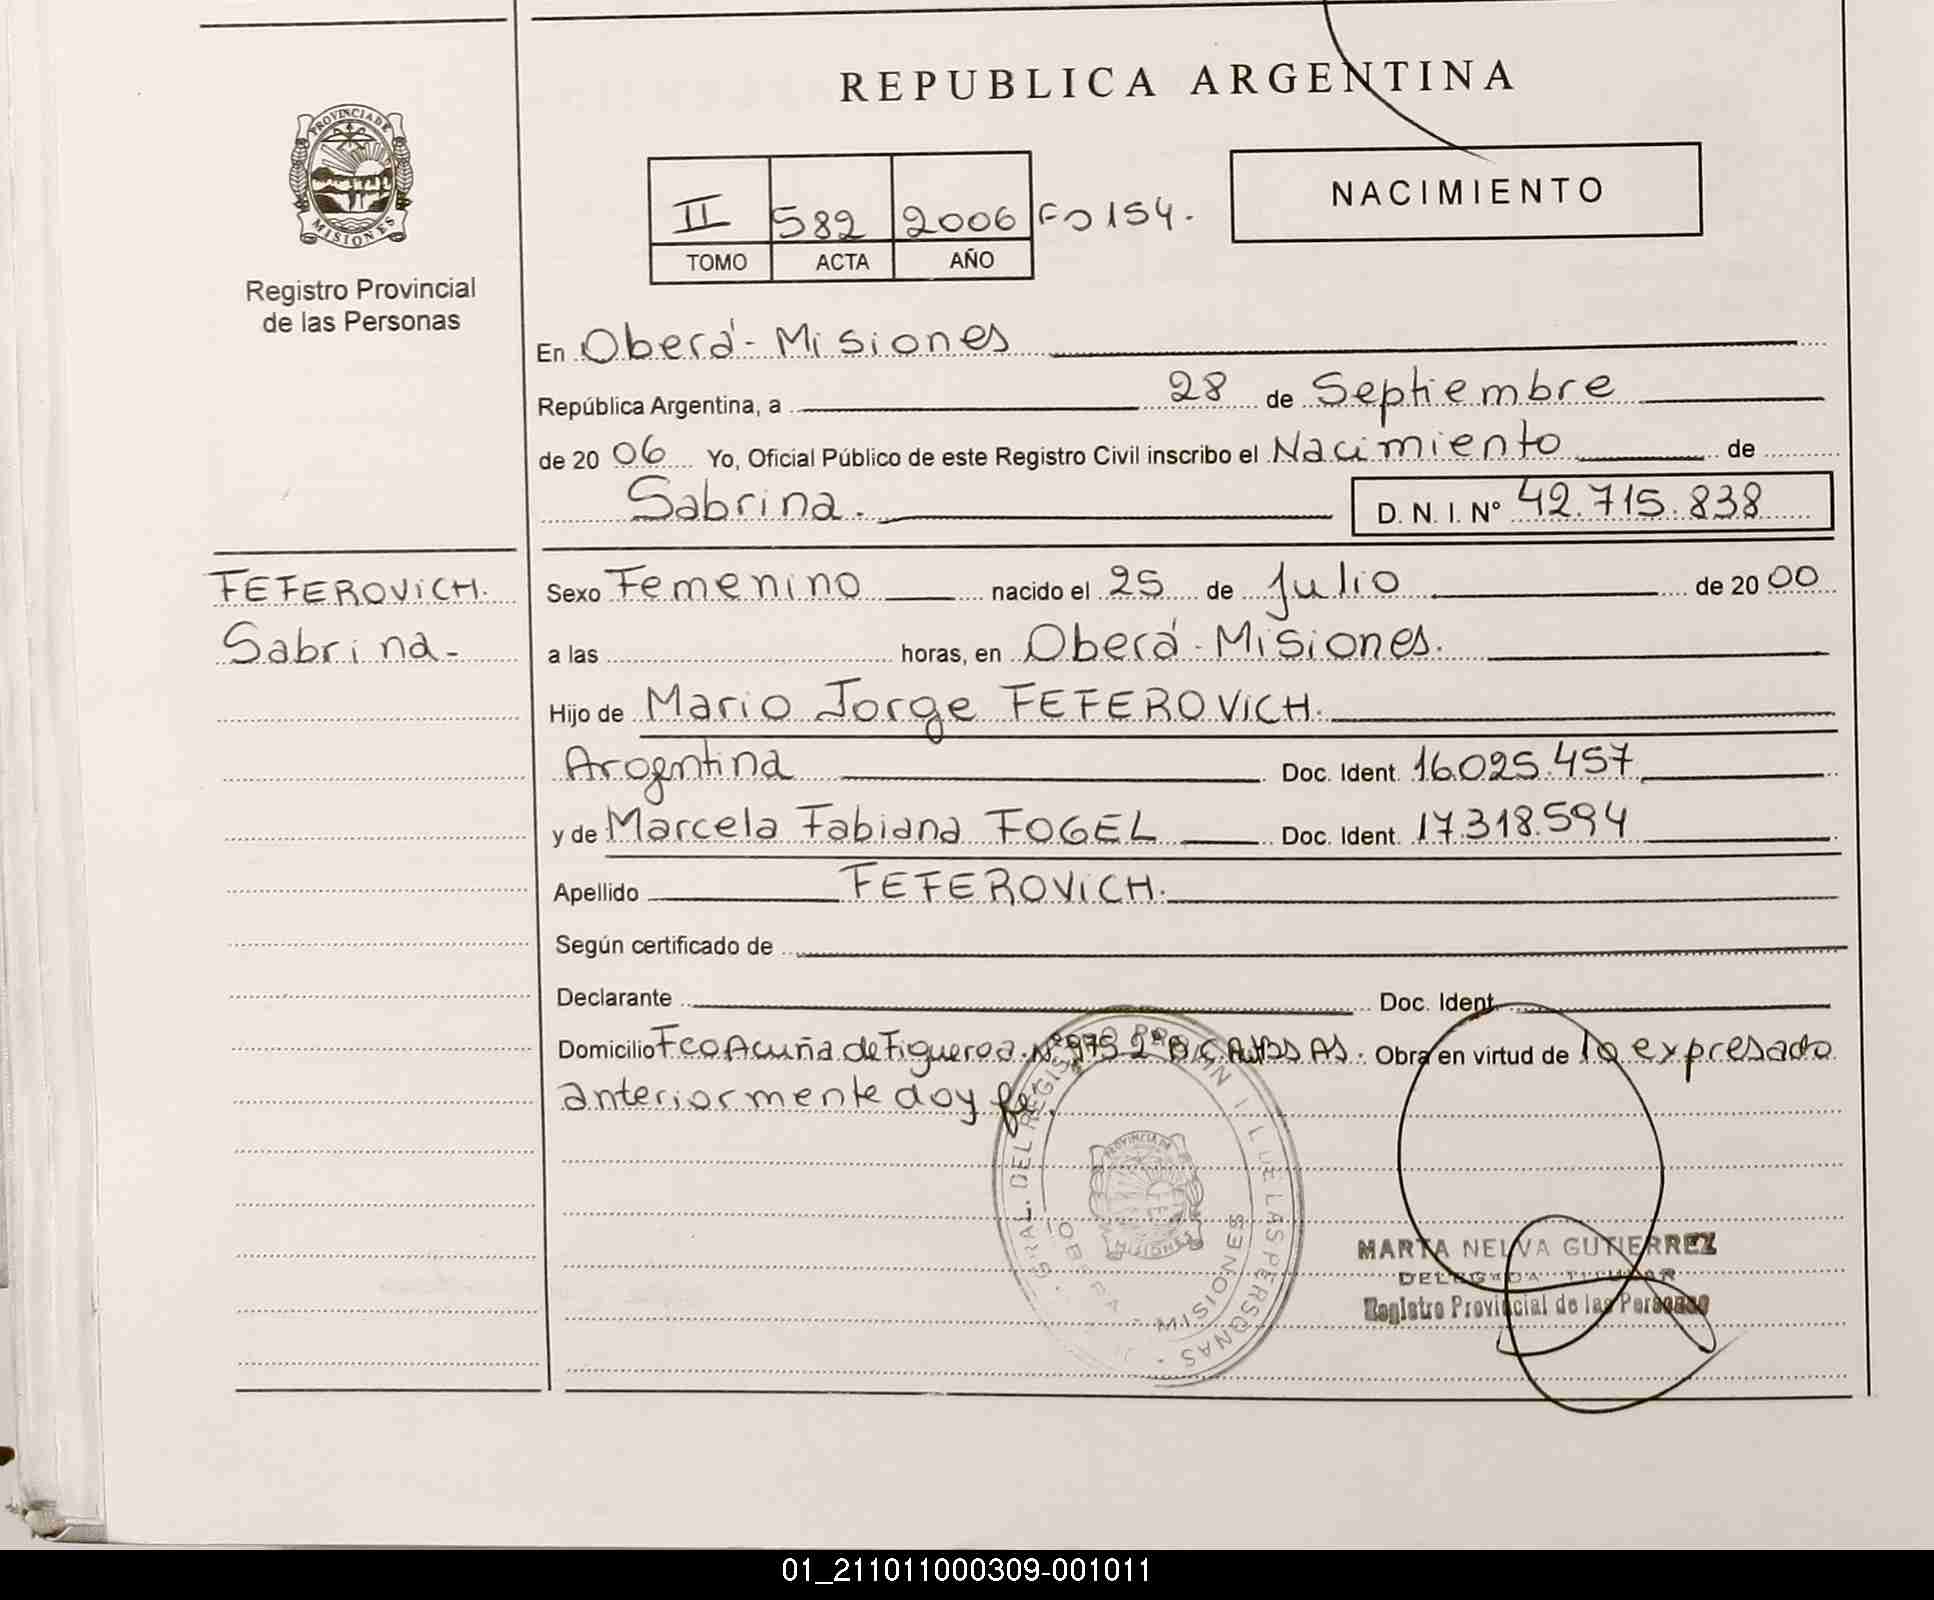 REPUBLICA ARGENTINA
PROVINCIA DE
MISIONES
Registro Provincial
de las Personas
NACIMIENTO
II 582 2006 Fo 154.
TOMO ACTA AÑO
En Oberá - Misiones
República Argentina, a 28 de Septiembre
de 20 06 Yo, Oficial Público de este Registro Civil inscribo el Nacimiento de
Sabrina. D. N. I. Nº 42.715.838
FEFEROVICH.
Sabrina-
Sexo Femenino nacido el 25 de Julio de 20 00
a las horas, en Oberá - Misiones.
Hijo de Mario Jorge FEFEROVICH.
Argentina Doc. Ident. 16.025.457
y de Marcela Fabiana FOGEL Doc. Ident. 17.318.594
Apellido FEFEROVICH.
Según certificado de
Declarante Doc. Ident.
Domicilio Fco Acuña de Figueroa Nº 973 2º Obra en virtud de lo expresado
anteriormente doy fe.
GRAL. DEL DE LAS PERSONAS
OBERA - MISIONES
PROVINCIA DE
MISIONES
MARTA NELVA GUTIERREZ
DELEGADA TITULAR
Registro Provincial de las Personas
01_211011000309-001011